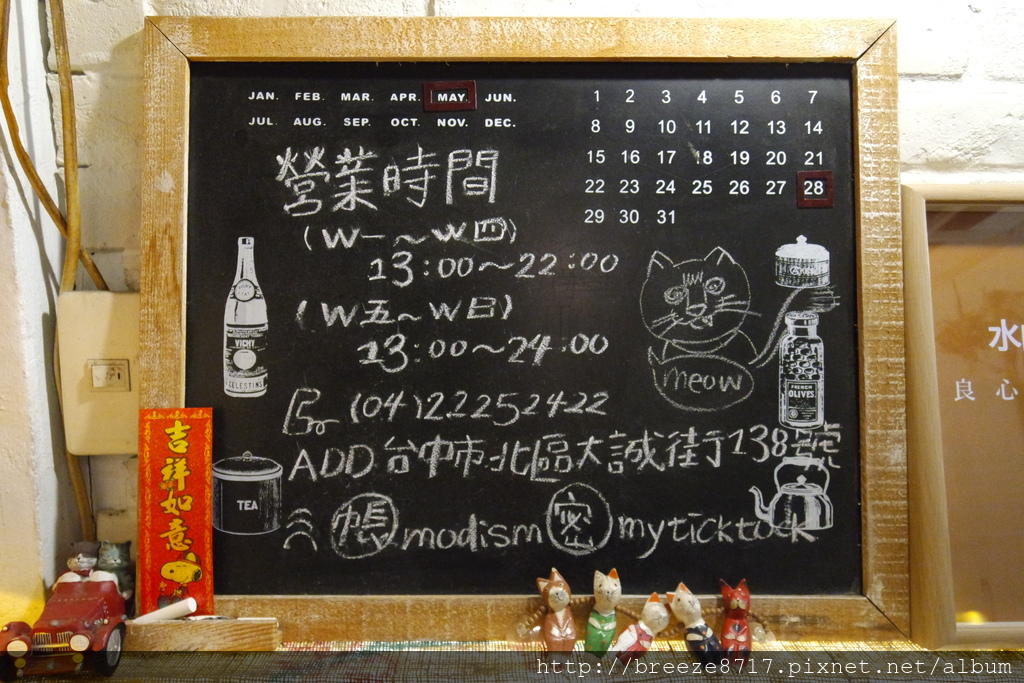 JAN. FEB. MAR. APR. MAY. JUN.
JUL. AUG. SEP. OCT. NOV. DEC.
1 2 3 4 5 6 7
8 9 10 11 12 13 14
15 16 17 18 19 20 21
22 23 24 25 26 27 28
29 30 31
營業時間
(W一~W四)
13:00~22:00
(W五~W日)
13:00~24:00
(04)22252422
ADD 台中市北區大誠街138號
帳 modism 密 myticktock
meow
VICHY
CELESTINS
FRENCH
OLIVES
TEA
吉祥如意
水
良心
http://breeze8717.pixnet.net/album